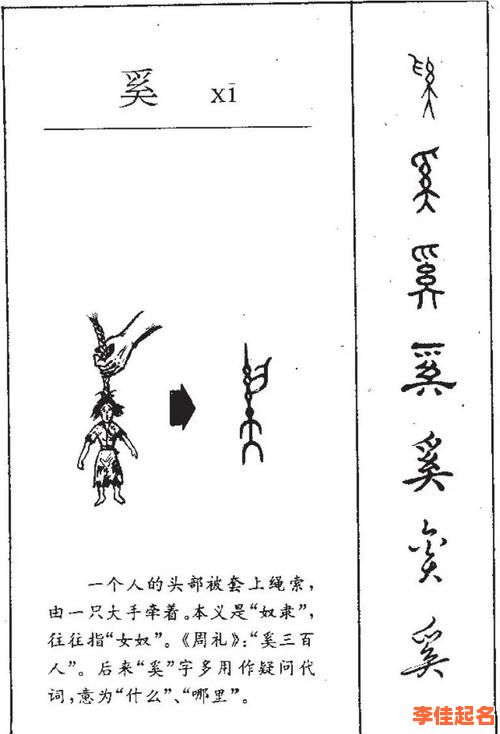 奚 xī
一个人的头部被套上绳索，
由一只大手牵着。本义是“奴隶”，
往往指“女奴”。《周礼》：“奚三百
人”。后来“奚”字多用作疑问代
词，意为“什么”、“哪里”。
奚
奚
奚
奚
奚
奚
奚
李佳起名